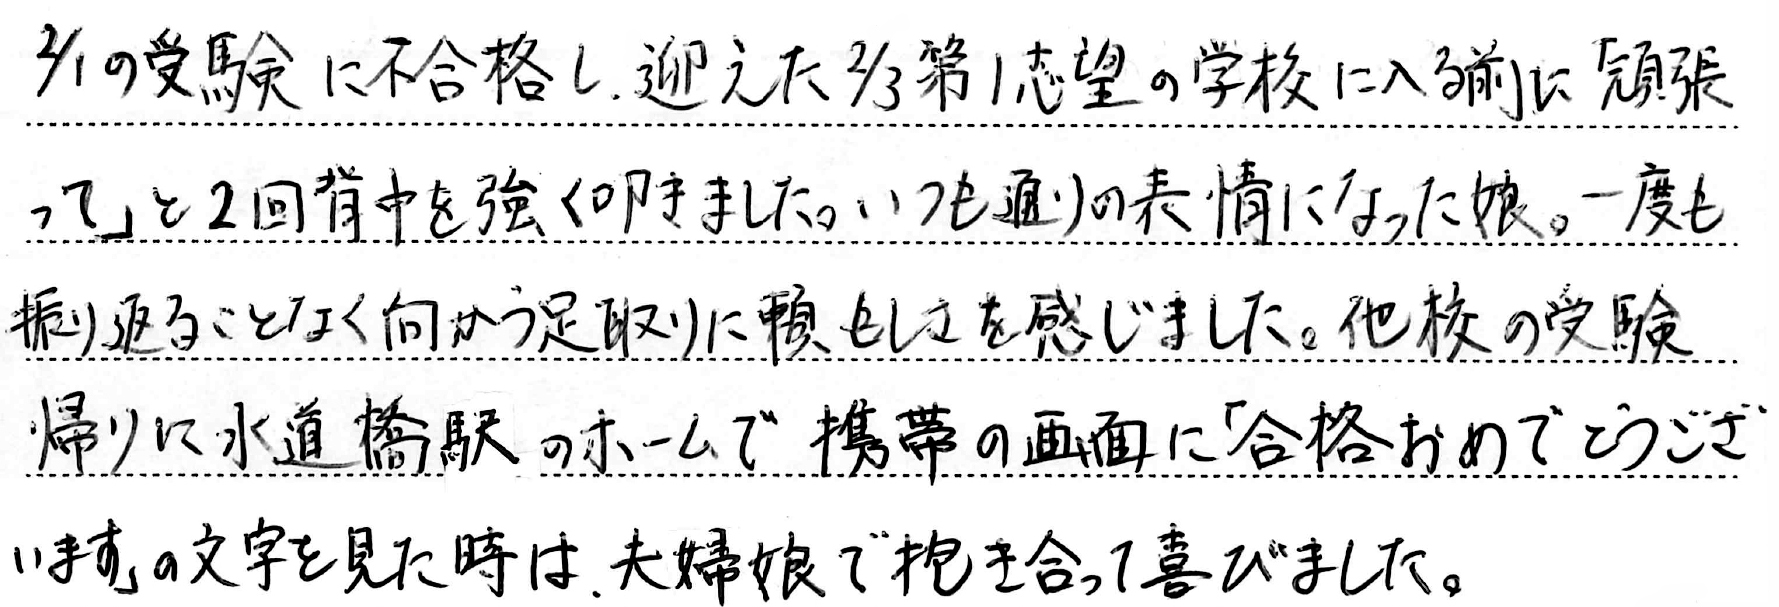 2/1の受験に不合格し、迎えた2/3第1志望の学校に入る前に「頑張
って」と2回背中を強く叩きました。いつも通りの表情になった娘。一度も
振り返ることなく向かう足取りに頼もしさを感じました。他校の受験
帰りに水道橋駅のホームで携帯の画面に「合格おめでとうござ
います」の文字を見た時は、夫婦娘で抱き合って喜びました。